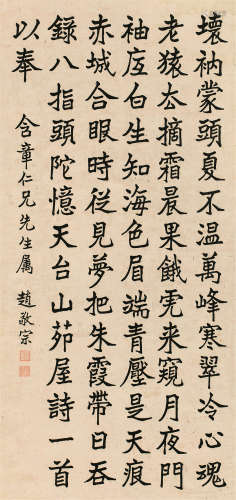 壞衲蒙頭夏不温萬峰寒翠冷心魂
老猿去摘霜晨果餓虎来窺月夜門
袖底白生知海色眉端青壓是天痕
赤城合眼時從見夢把朱霞帶日吞
錄八指頭陀憶天台山茆屋詩一首
以奉
含章仁兄先生屬 趙敬宗